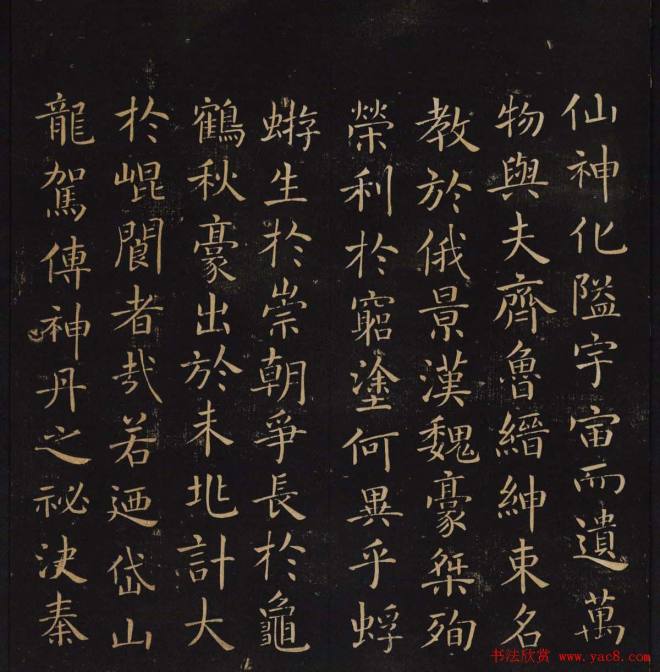 仙神化隘宇宙而遺萬
物與夫齊魯縉紳束名
教於俄景漢魏豪桀殉
榮利於窮塗何異乎蜉
蝣生於崇朝爭長於龜
鶴秋豪出於未兆計大
於崐閬者㢤若迺岱山
龍駕傳神丹之祕決秦
书法欣赏 www.yac8.com